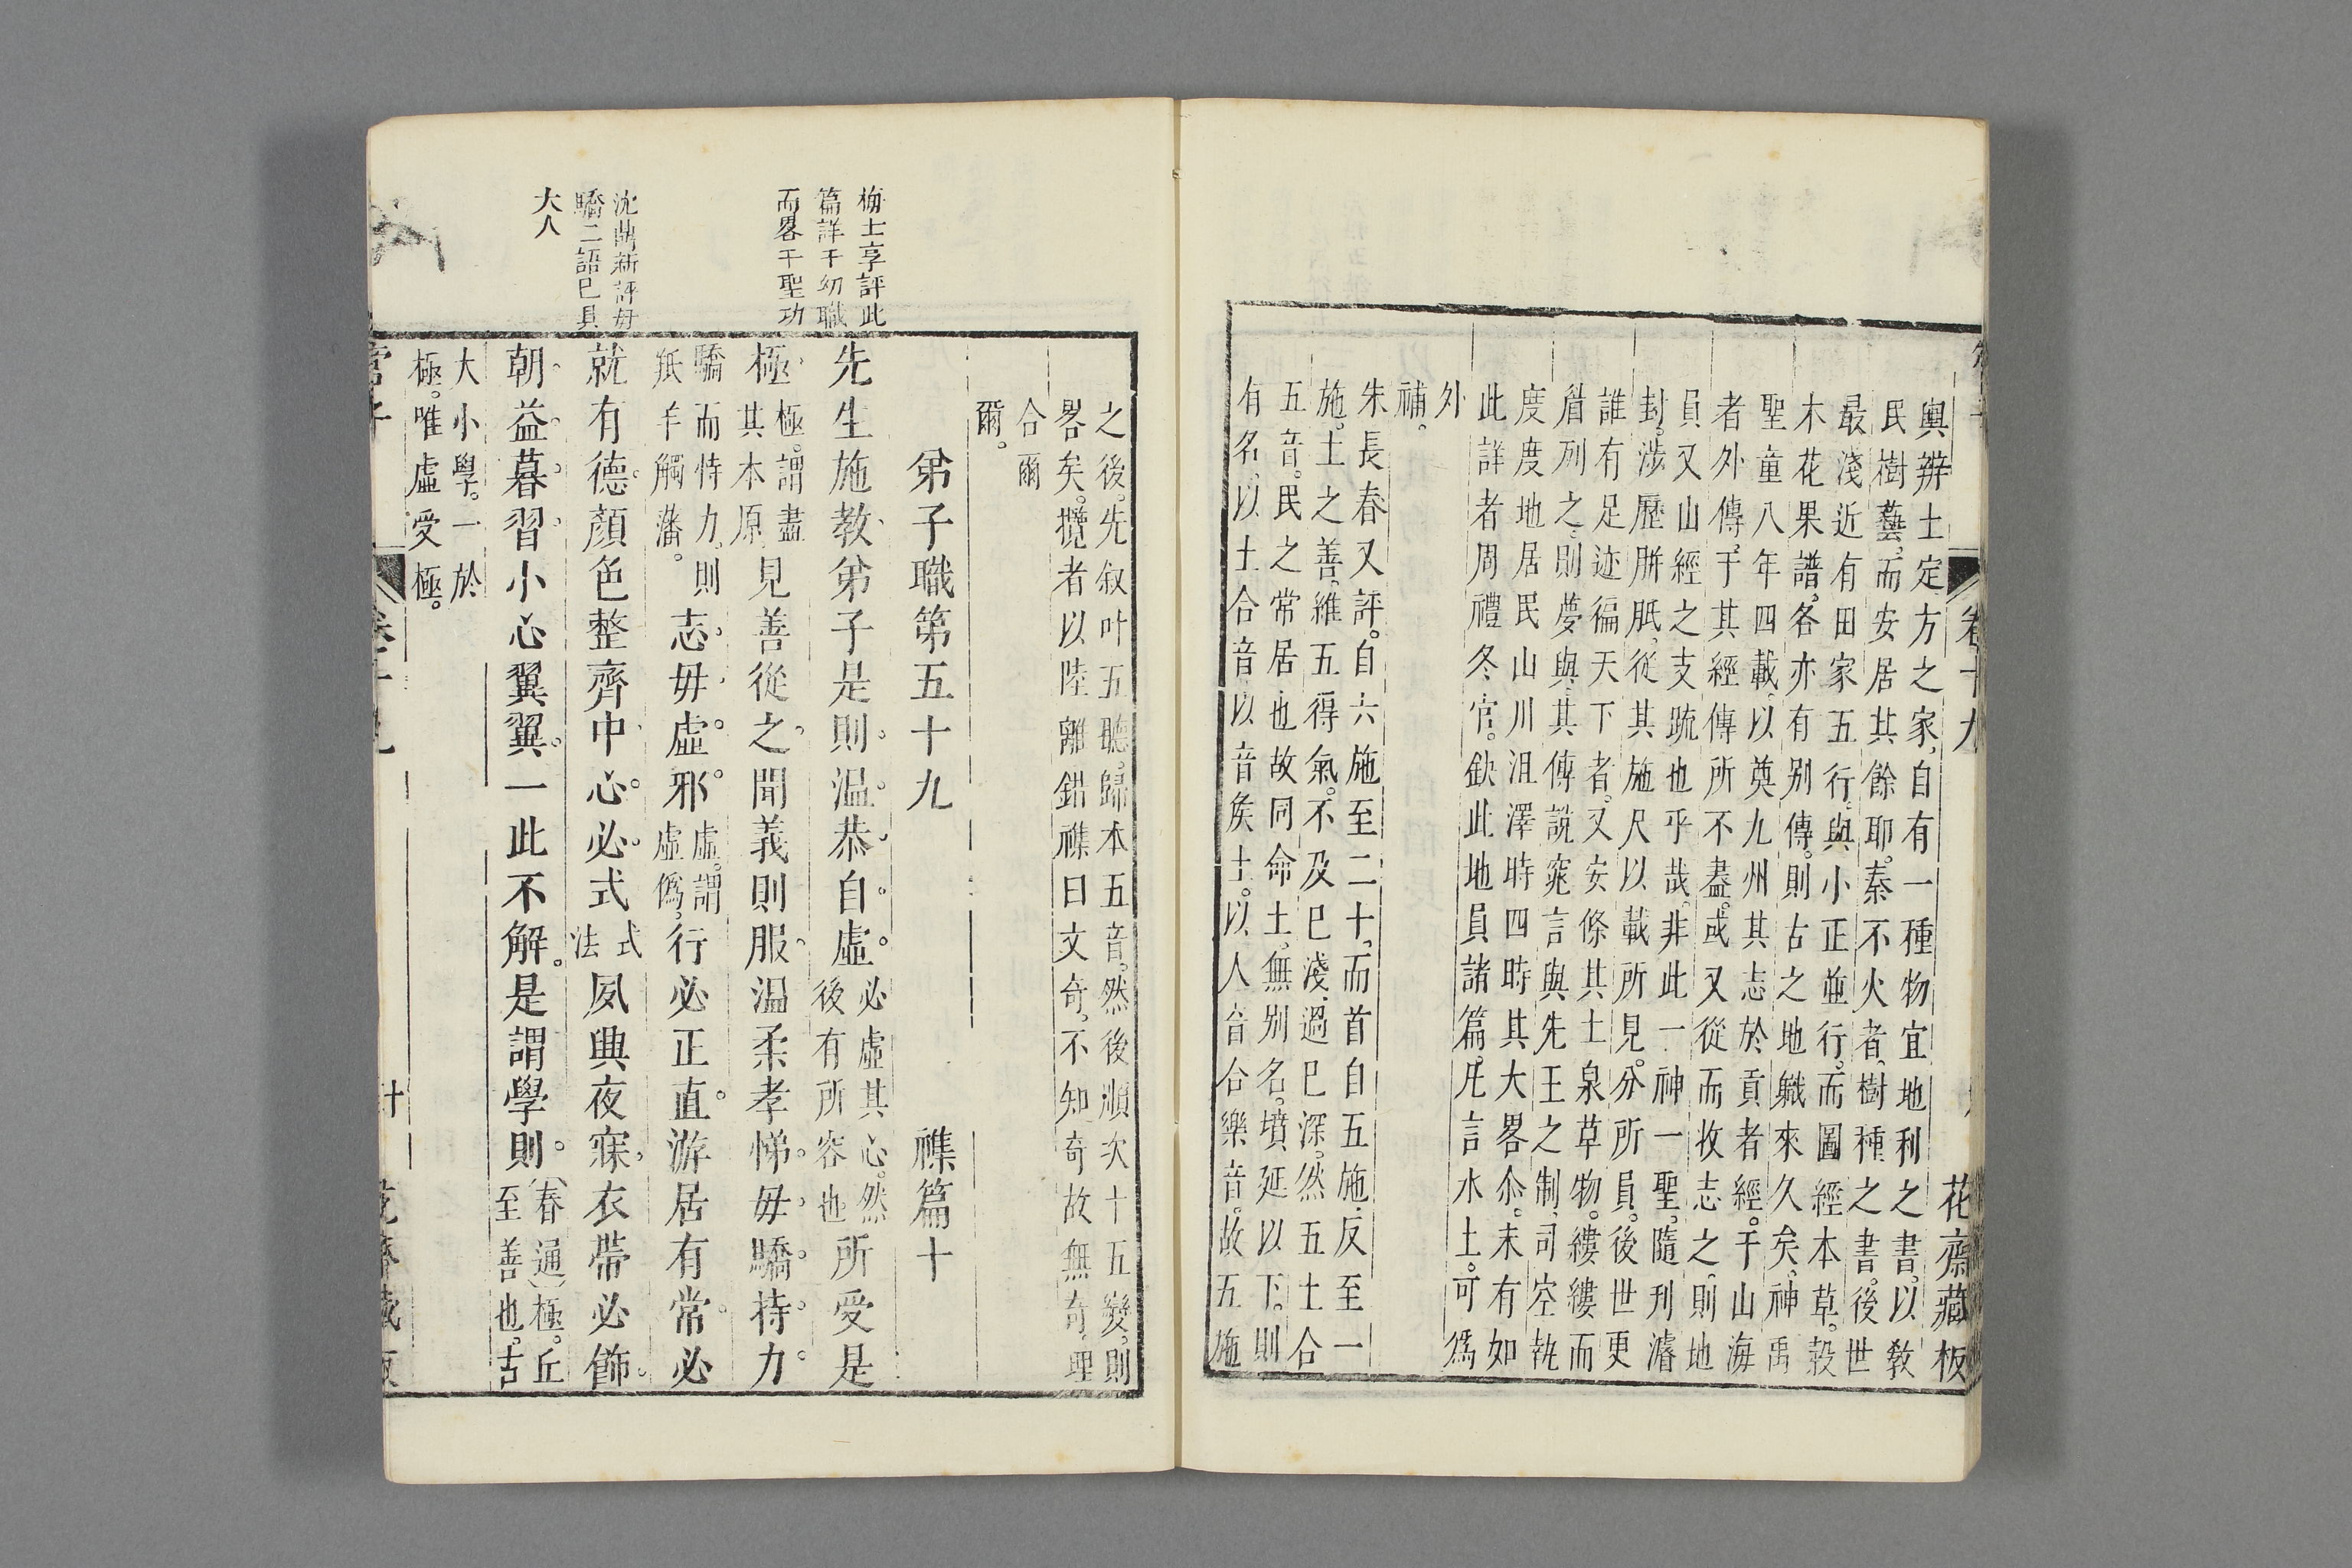 卷十九
花齋藏板
輿辨土定方之家自有一種物宜地利之書以敎
民樹藝而安居其餘耶秦不火者樹種之書後世
最淺近有田家五行與小正並行而圖經本草穀
木花果譜各亦有別傳則古之地軄來久矣神禹
聖童八年四載以奠九州其志於貢者經于山海
者外傳于其經傳所不盡或又從而收志之則地
員又山經之支疏也乎哉非此一神一聖隨刋濬
封涉歷胼胝從其施尺以載所見分所員後世更
誰有足迹徧天下者又安條其土泉草物縷縷而
眉列之則夢與其傳說窕言與先王之制司空執
度度地居民山川沮澤時四時其大畧尒未有如
此詳者周禮冬官缺此地員諸篇凡言水土可爲
外
補
朱長春又評自六施至二十而首自五施反至一
施土之善維五得氣不及巳淺過巳深然五土合
五音民之常居也故同命土無別名墳延以下則
有名以土合音以音矦土以人音合樂音故五施
之後先叙叶五聽歸本五音然後順次十五變則
畧矣攬者以陸離錯襍曰文奇不知奇故無奇理
合爾
爾
弟子職第五十九　襍篇十
梅士享評此
篇詳于幼職
而畧于聖功
先生施教弟子是則温恭自虛必虛其心然
後有所容也所受是
極極謂盡
其本原見善從之聞義則服温柔孝悌毋驕恃力
驕而恃力則
羝羊觸藩志毋虛邪虛謂
虛僞行必正直游居有常必
沈鼎新評毋
驕二語巳具
大人
就有德顏色整齊中心必式式
法夙興夜寐衣帶必飾
朝益暮習小心翼翼一此不解是謂學則(春通)極丘
至善也古
大小學一於
極唯虛受極
管子
卷十九